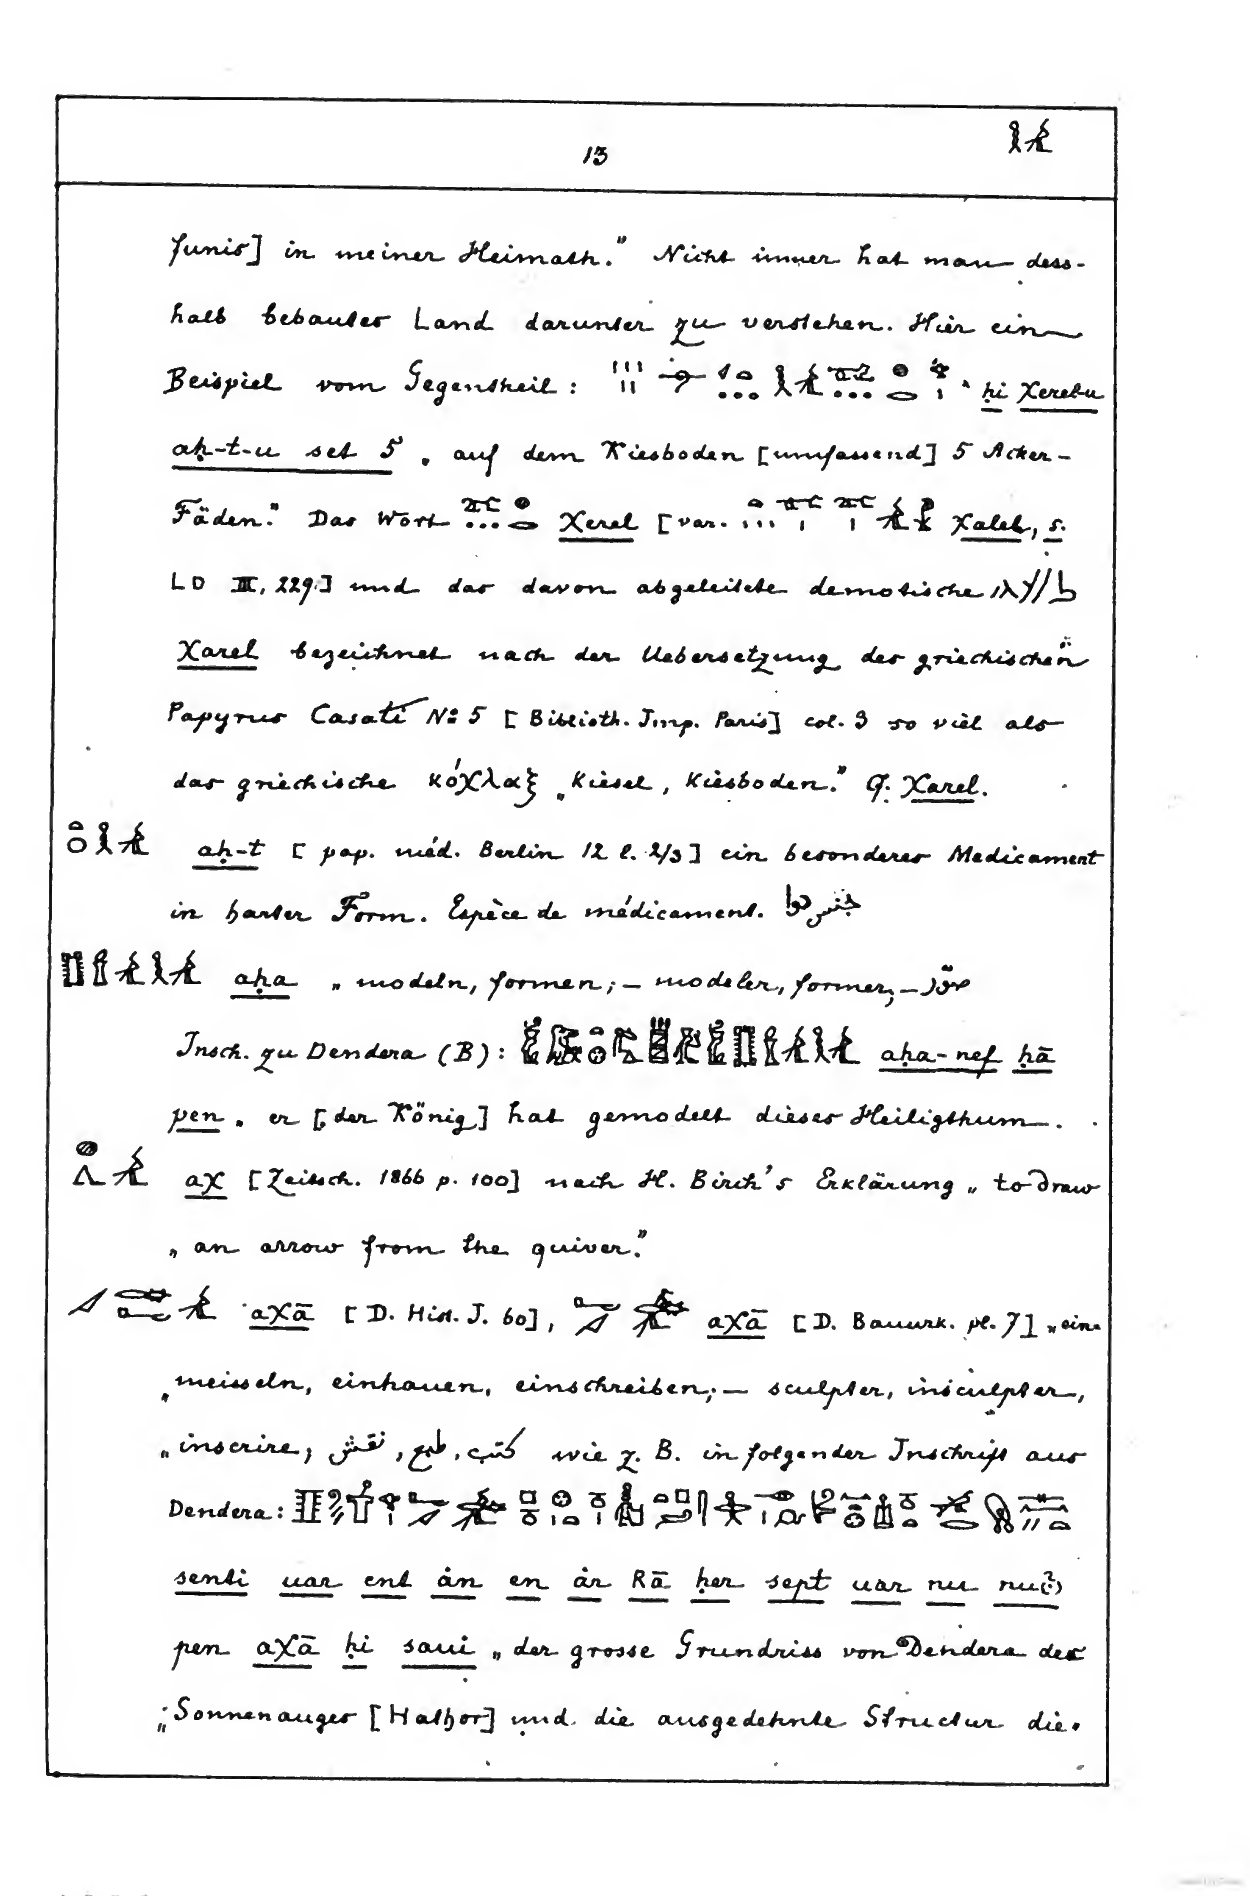 13
funis] in meiner Heimath." Nicht immer hat man dess-
halb bebautes Land darunter zu verstehen. Hier ein
Beispiel vom Gegentheil: ḥi χerebu
aḥ-t-u set 5 „auf dem Kiesboden [umfassend] 5 Acker-
Fäden." Das Wort χerel [var. χaleb, s.
LD III, 229.] und das davon abgeleitete demotische
χarel bezeichnet nach der Uebersetzung des griechischen
Papyrus Casati No 5 [Biblioth. Imp. Paris] col. 3 so viel als
das griechische κόχλαξ „Kiesel, Kiesboden." Cf. χarel.
aḥ-t [pap. méd. Berlin 12 l. 2/3] ein besonderes Medicament
in harter Form. Espèce de médicament. جنس دوا
aḥa „modeln, formen; — modeler, former; — صوّر
Insch. zu Dendera (B): aḥa-nef ḥā
pen „er [der König] hat gemodelt dieses Heiligthum.
aχ [Zeitsch. 1866 p. 100] nach H. Birch's Erklärung „to draw
„an arrow from the quiver."
aχā [D. Hist. I. 60], aχā [D. Bauurk. pl. 7] „ein-
„meisseln, einhauen, einschreiben; — sculpter, insculpter,
„inscrire, نقش, طبع, كتب wie z. B. in folgender Inschrift aus
Dendera:
senti uar ent ȧn en ȧr Rā ḥer sept uar nu nu(?)
pen aχā ḥi saui „der grosse Grundriss von Dendera des
„Sonnenauges [Hathor] und die ausgedehnte Structur die-